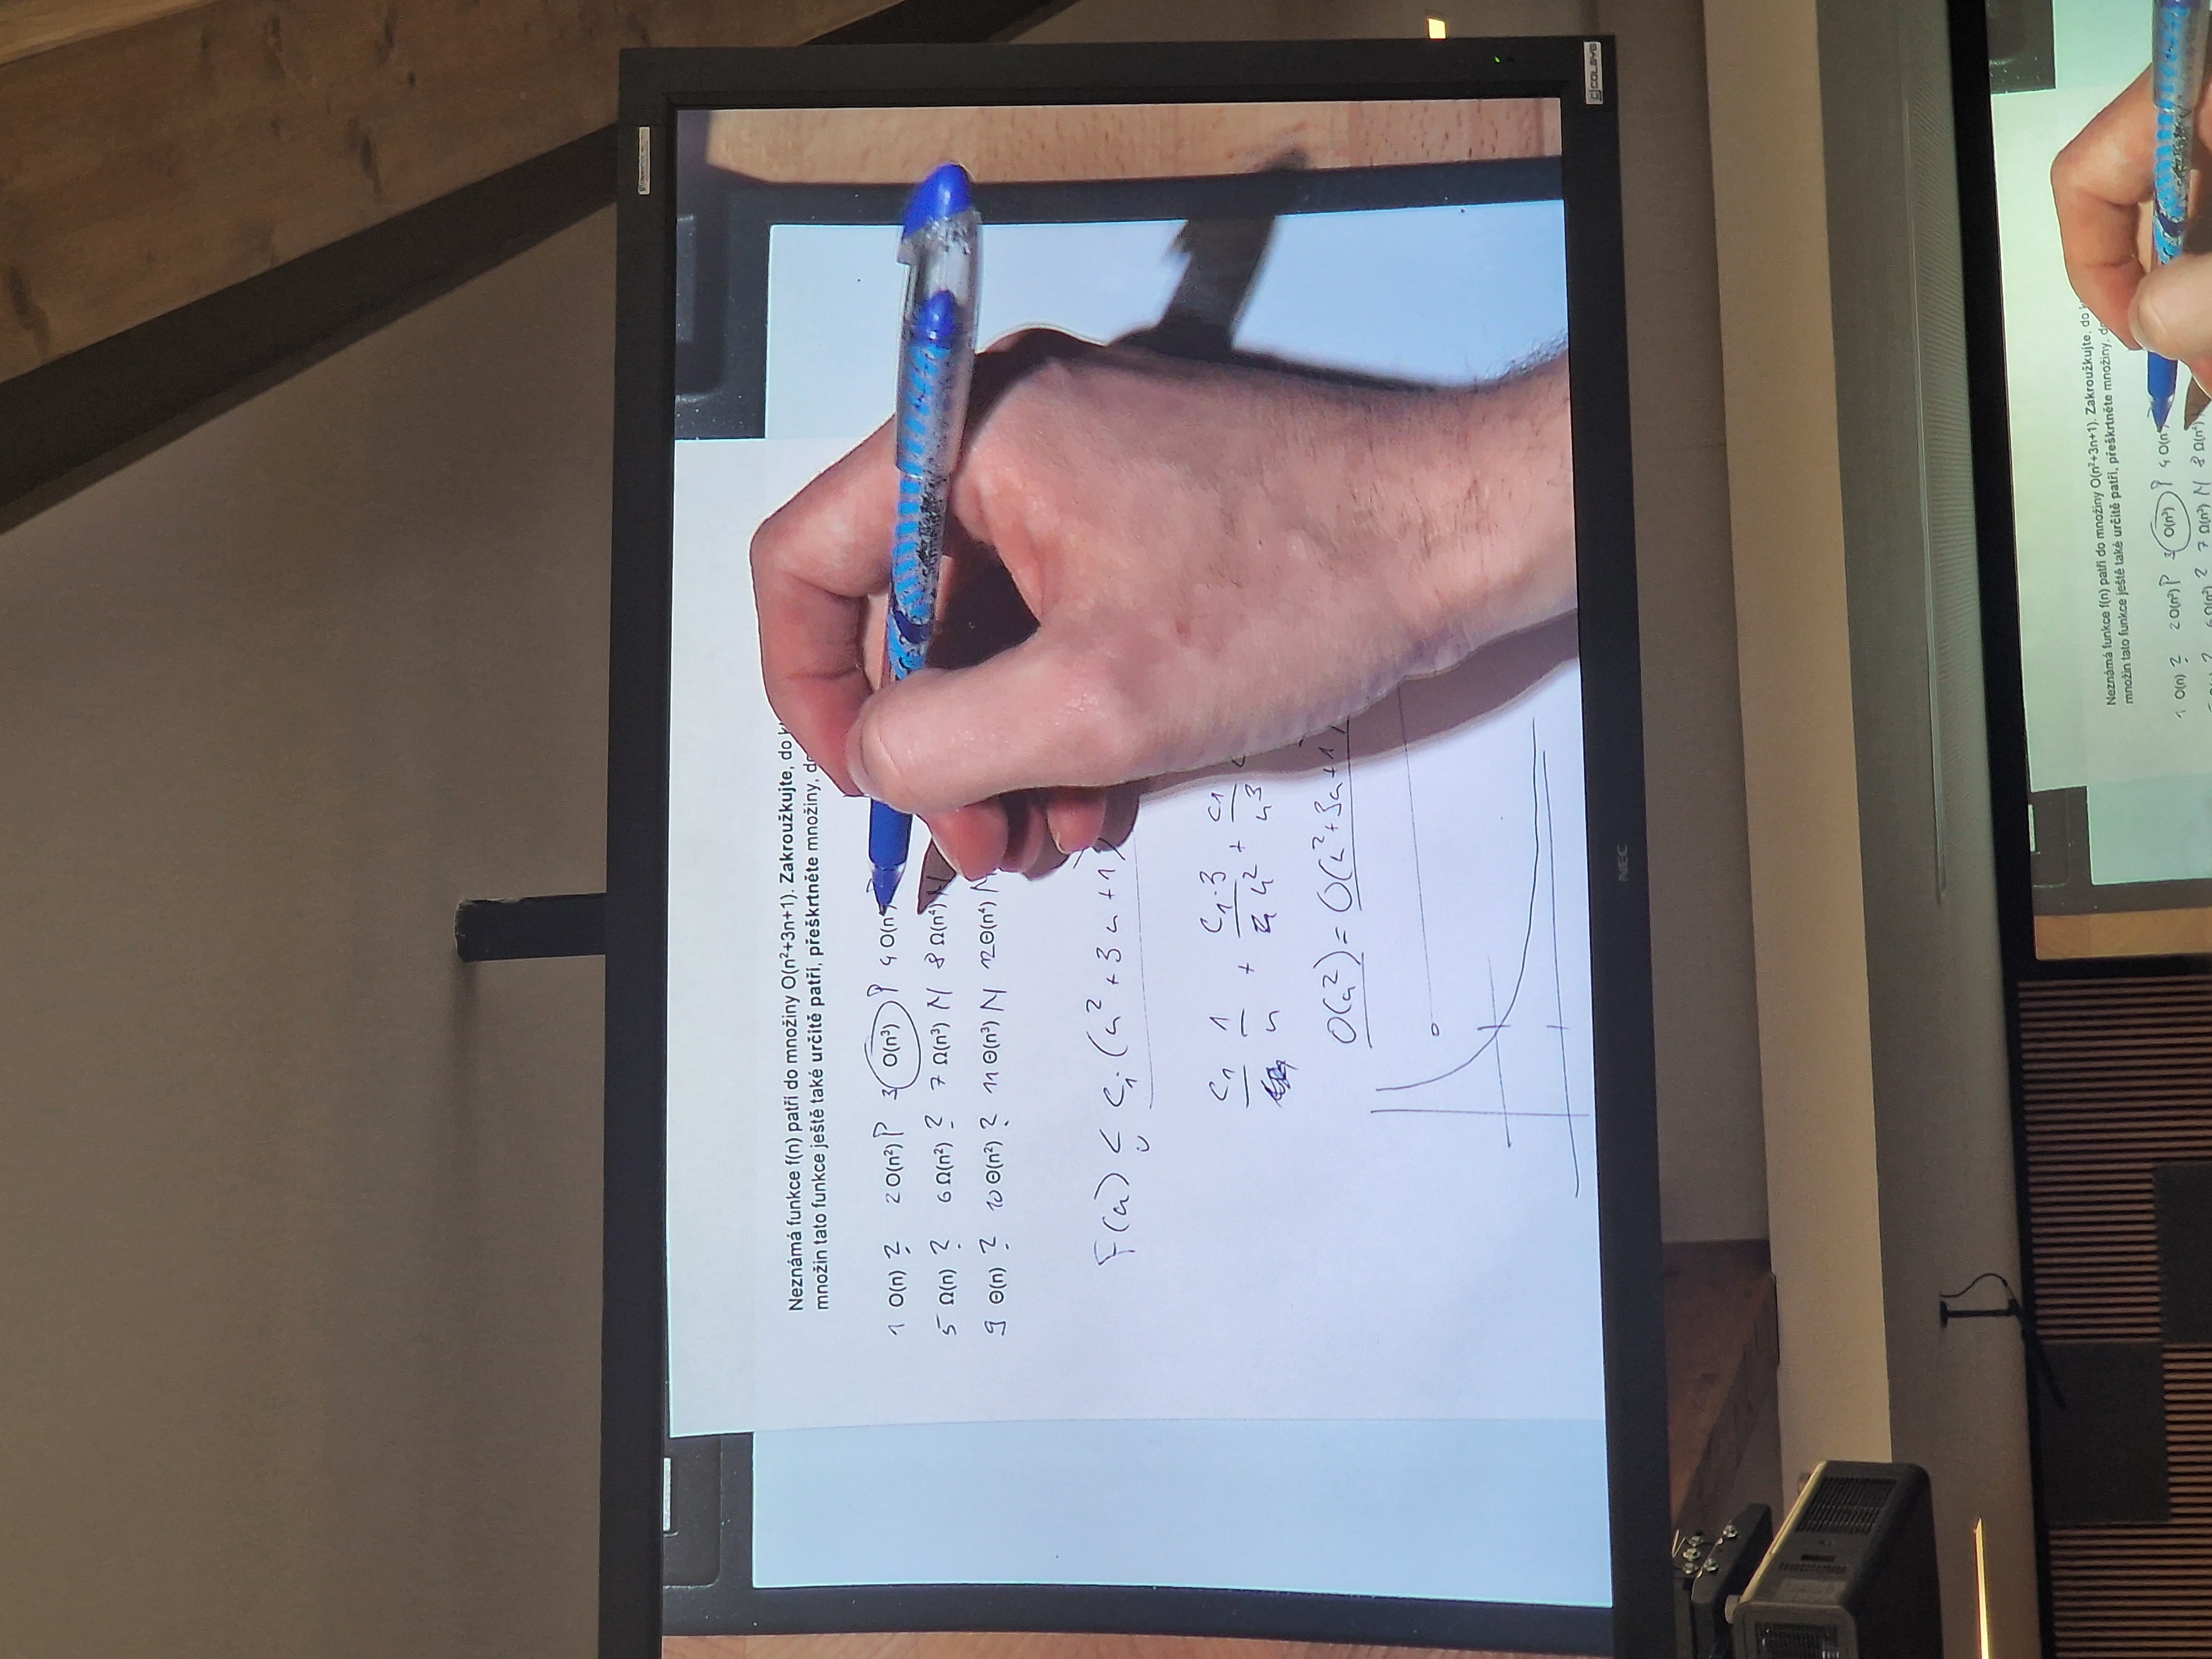 Neznámá funkce f(n) patří do množiny O(n²+3n+1). Zakroužkujte, do
množin tato funkce ještě také určitě patří, přeškrtněte množiny,
1 O(n) ? 2 O(n²) P 3 O(n³) P 4 O(n
5 Ω(n) ? 6 Ω(n²) ? 7 Ω(n³) N 8 Ω(n⁴) N
9 Θ(n) ? 10 Θ(n²) ? 11 Θ(n³) N 12 Θ(n⁴) N
F(n) ≤ c₁·(n²+3n+1)
c₁ 1/n + c₁·3/n² + c₁/n³ <
O(n²) = O(n²+3n+1)
NEC
COLSYS
Neznámá funkce f(n) patří do množiny O(n²+3n+1). Zakroužkujte, do
množin tato funkce ještě také určitě patří, přeškrtněte množiny,
1 O(n) ? 2 O(n²) P 3 O(n³) P 4 O(n
? 6 Ω(n²) ? 7 Ω(n³) N 8 Ω(n⁴)